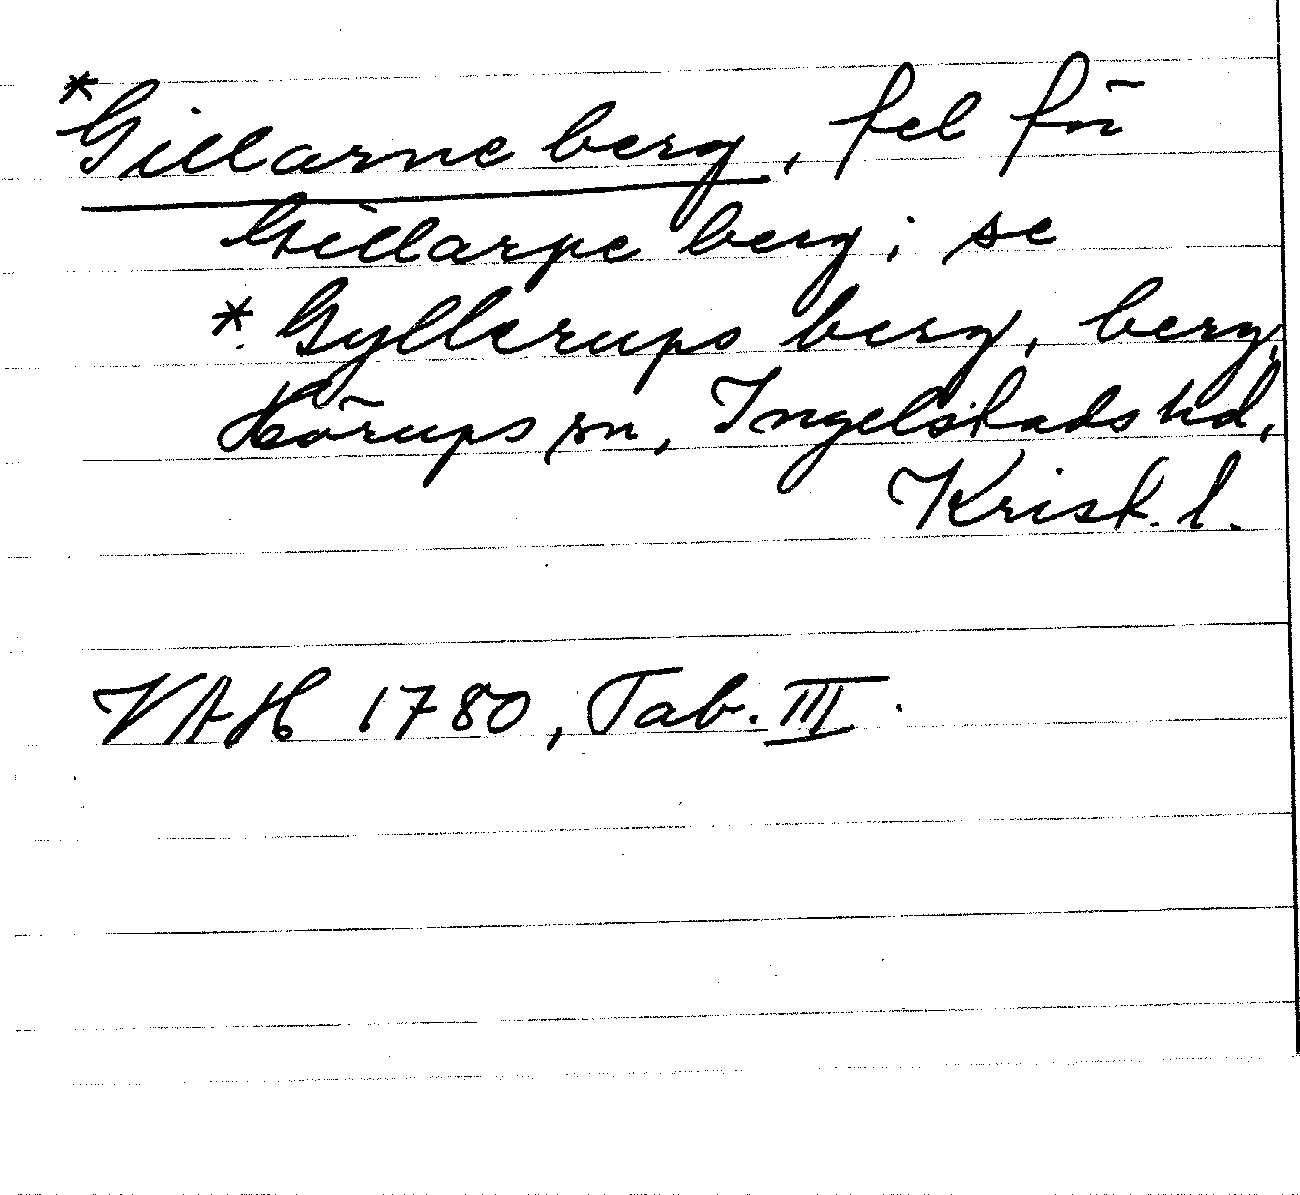 *Gillarne berg, fel för
Gillarpe berg; se
*Gyllerups berg, berg,
Hörups sn, Ingelstads hd,
Krist. l.
VAH 1780, Tab. III.